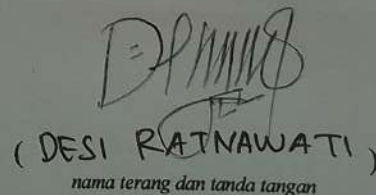 ( DESI RATNAWATI )
nama terang dan tanda tangan